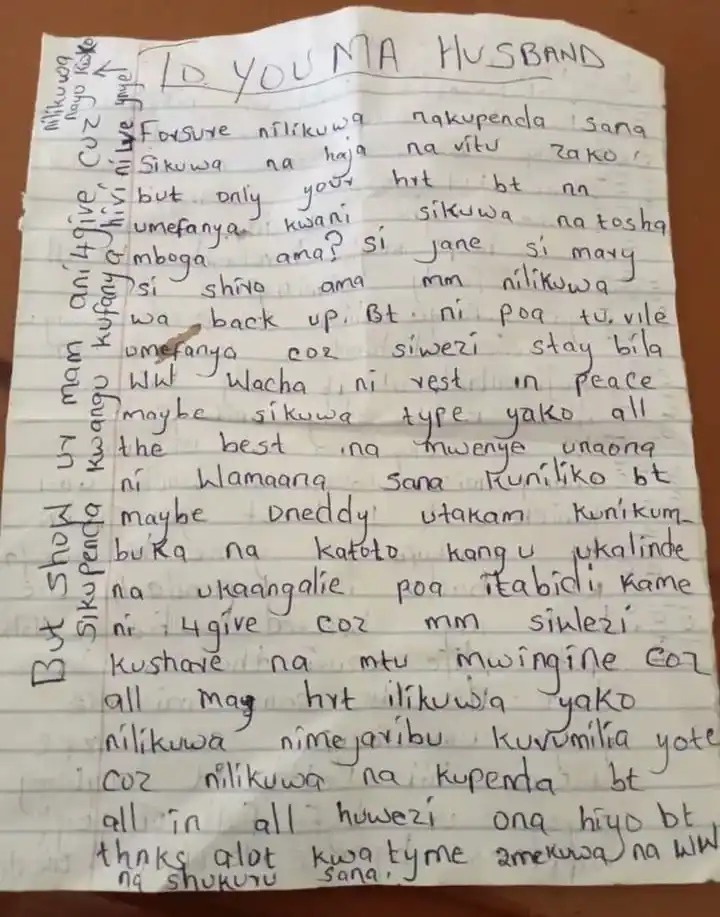 TO YOU MA HUSBAND
Forsure nilikuwa nakupenda sana
Sikuwa na haja na vitu zako
but only your hrt bt nn
umefanya kwani sikuwa natosha
mboga ama? si jane si mary
si shiro ama mm nilikuwa
wa back up. Bt ni poa tu. vile
umefanya coz siwezi stay bila
WW Wacha ni rest in peace
maybe sikuwa type yako all
the best na mwenye unaona
ni Wamaana sana kuniliko bt
maybe oneday utakam kunikum
buka na katoto kangu ukalinde
na ukaangalie poa itabidi kame
ni 4give coz mm siwezi
kushare na mtu mwingine coz
all my hrt ilikuwa yako
nilikuwa nimejaribu kuvumilia yote
coz nilikuwa na kupenda bt
all in all huwezi ona hiyo bt
thnks alot kwa tyme 2mekuwa na WW
na shukuru sana.
But show ur mam ani4give coz
sikupenda kwangu kufanya hivi ni
nilikuwa
nayo